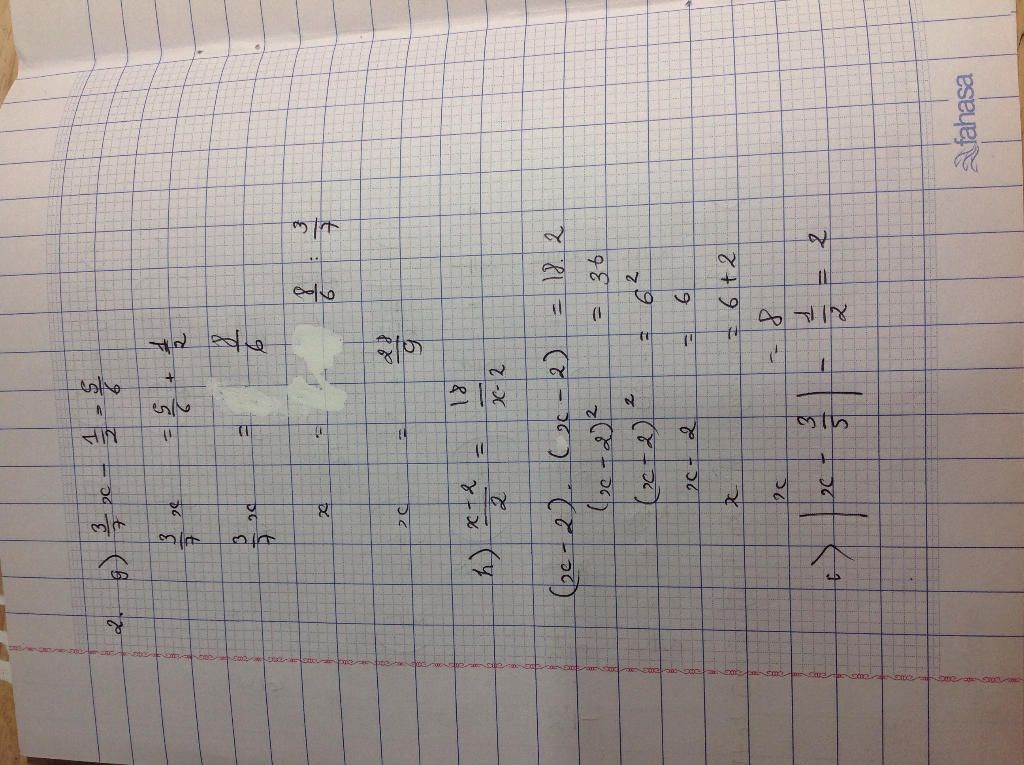 2. g) 3/7 x - 1/2 = 5/6
3/7 x = 5/6 + 1/2
3/7 x = 8/6
x = 8/6 : 3/7
x = 28/9
h) x-2/2 = 18/x-2
(x-2). (x-2) = 18.2
(x-2)² = 36
(x-2)² = 6²
x-2 = 6
x = 6+2
x = 8
|x - 3/5| - 1/2 = 2
fahasa